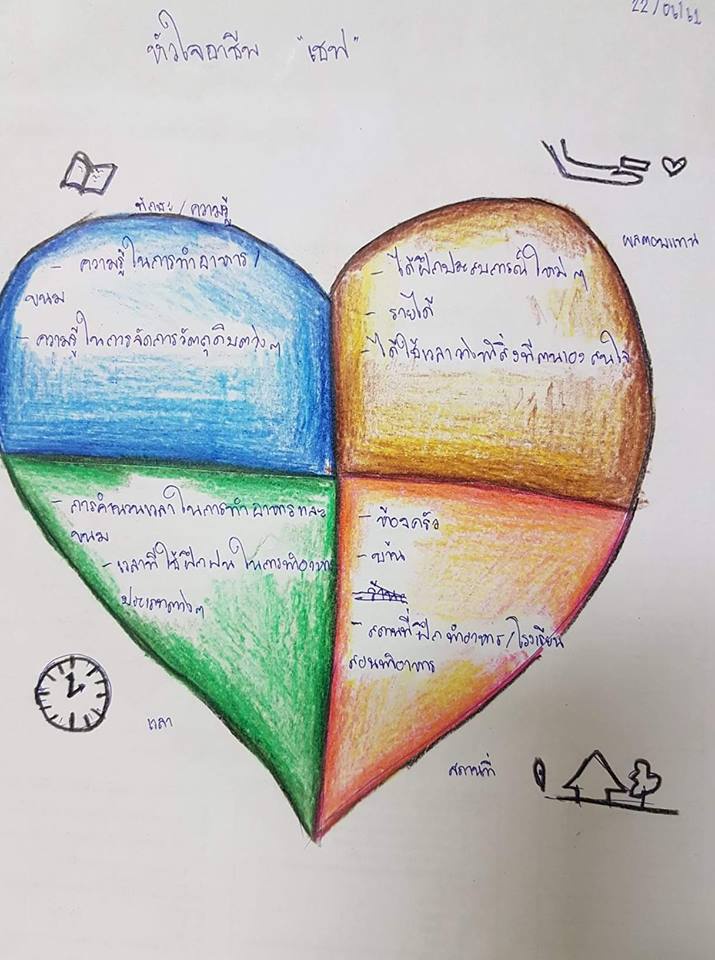 22/04/61
หัวใจอาชีพ "เชฟ"
ทักษะ/ความรู้
- ความรู้ในการทำอาหาร/
ขนม
- ความรู้ในการจัดการวัตถุดิบต่างๆ
ผลตอบแทน
- ได้ฝึกประสบการณ์ใหม่ๆ
- รายได้
- ได้ใช้เวลาว่างทำสิ่งที่ตนเองสนใจ
- การคำนวนเวลาในการทำอาหารและ
ขนม
- เวลาที่ใช้ฝึกฝนในการทำอาหาร
ประเภทต่างๆ
เวลา
- ห้องครัว
- บ้าน
- สถานที่ฝึกทำอาหาร/โรงเรียน
สอนทำอาหาร
สถานที่